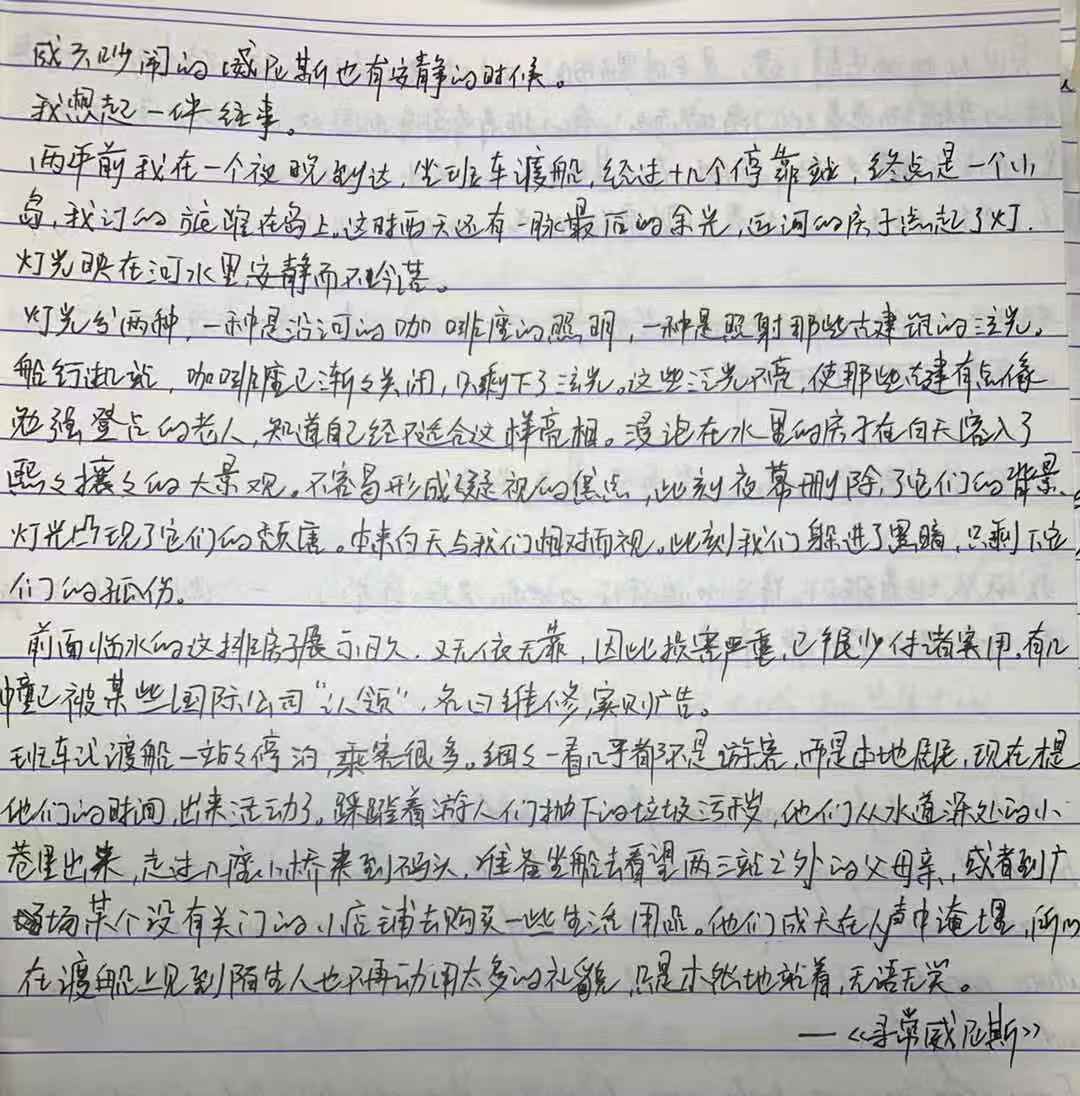 成天吵闹的威尼斯也有安静的时候。
我想起一件往事。
两年前我在一个夜晚到达,坐班车渡船,经过十几个停靠站,终点是一个小
岛,我订的旅馆在岛上。这时西天还有一脉最后的余光,近河的房子点起了灯.
灯光映在河水里安静而不冷落。
灯光分两种,一种是沿河的咖啡座的照明,一种是照射那些古建筑的泛光。
船行几站,咖啡座已渐々关闭,只剩下了泛光。这些泛光不亮,使那些古建有点像
勉强登台的老人,知道自己经不适合这样亮相。浸泡在水里的房子在白天溶入了
熙々攘々的大景观。不容易形成凝视的焦点,此刻夜幕删除了它们的背景、
灯光凸现了它们的颓唐。本来白天与我们相对而视,此刻我们躲进了黑暗,只剩下它
们的孤伤。
前面临水的这排房子展示日久,又无依无靠,因此损害严重,已很少付诸实用,有几
幢已被某些国际公司“认领”,名曰维修,实则广告。
班车式渡船一站々停泊,乘客很多。细々一看几乎都不是游客,而是本地居民,现在才是
他们的时间,出来活动了。踩踏着游人们抛下的垃圾污秽,他们从水道深处的小
巷里出来,走过几座小桥来到码头,准备坐船去看望两三站之外的父母亲,或者到广
场某个没有关门的小店铺去购买一些生活用品。他们成天在人声中淹埋,所以
在渡船上见到陌生人也不再动用太多的礼貌,只是木然地站着,无语无笑。
—《寻常威尼斯》